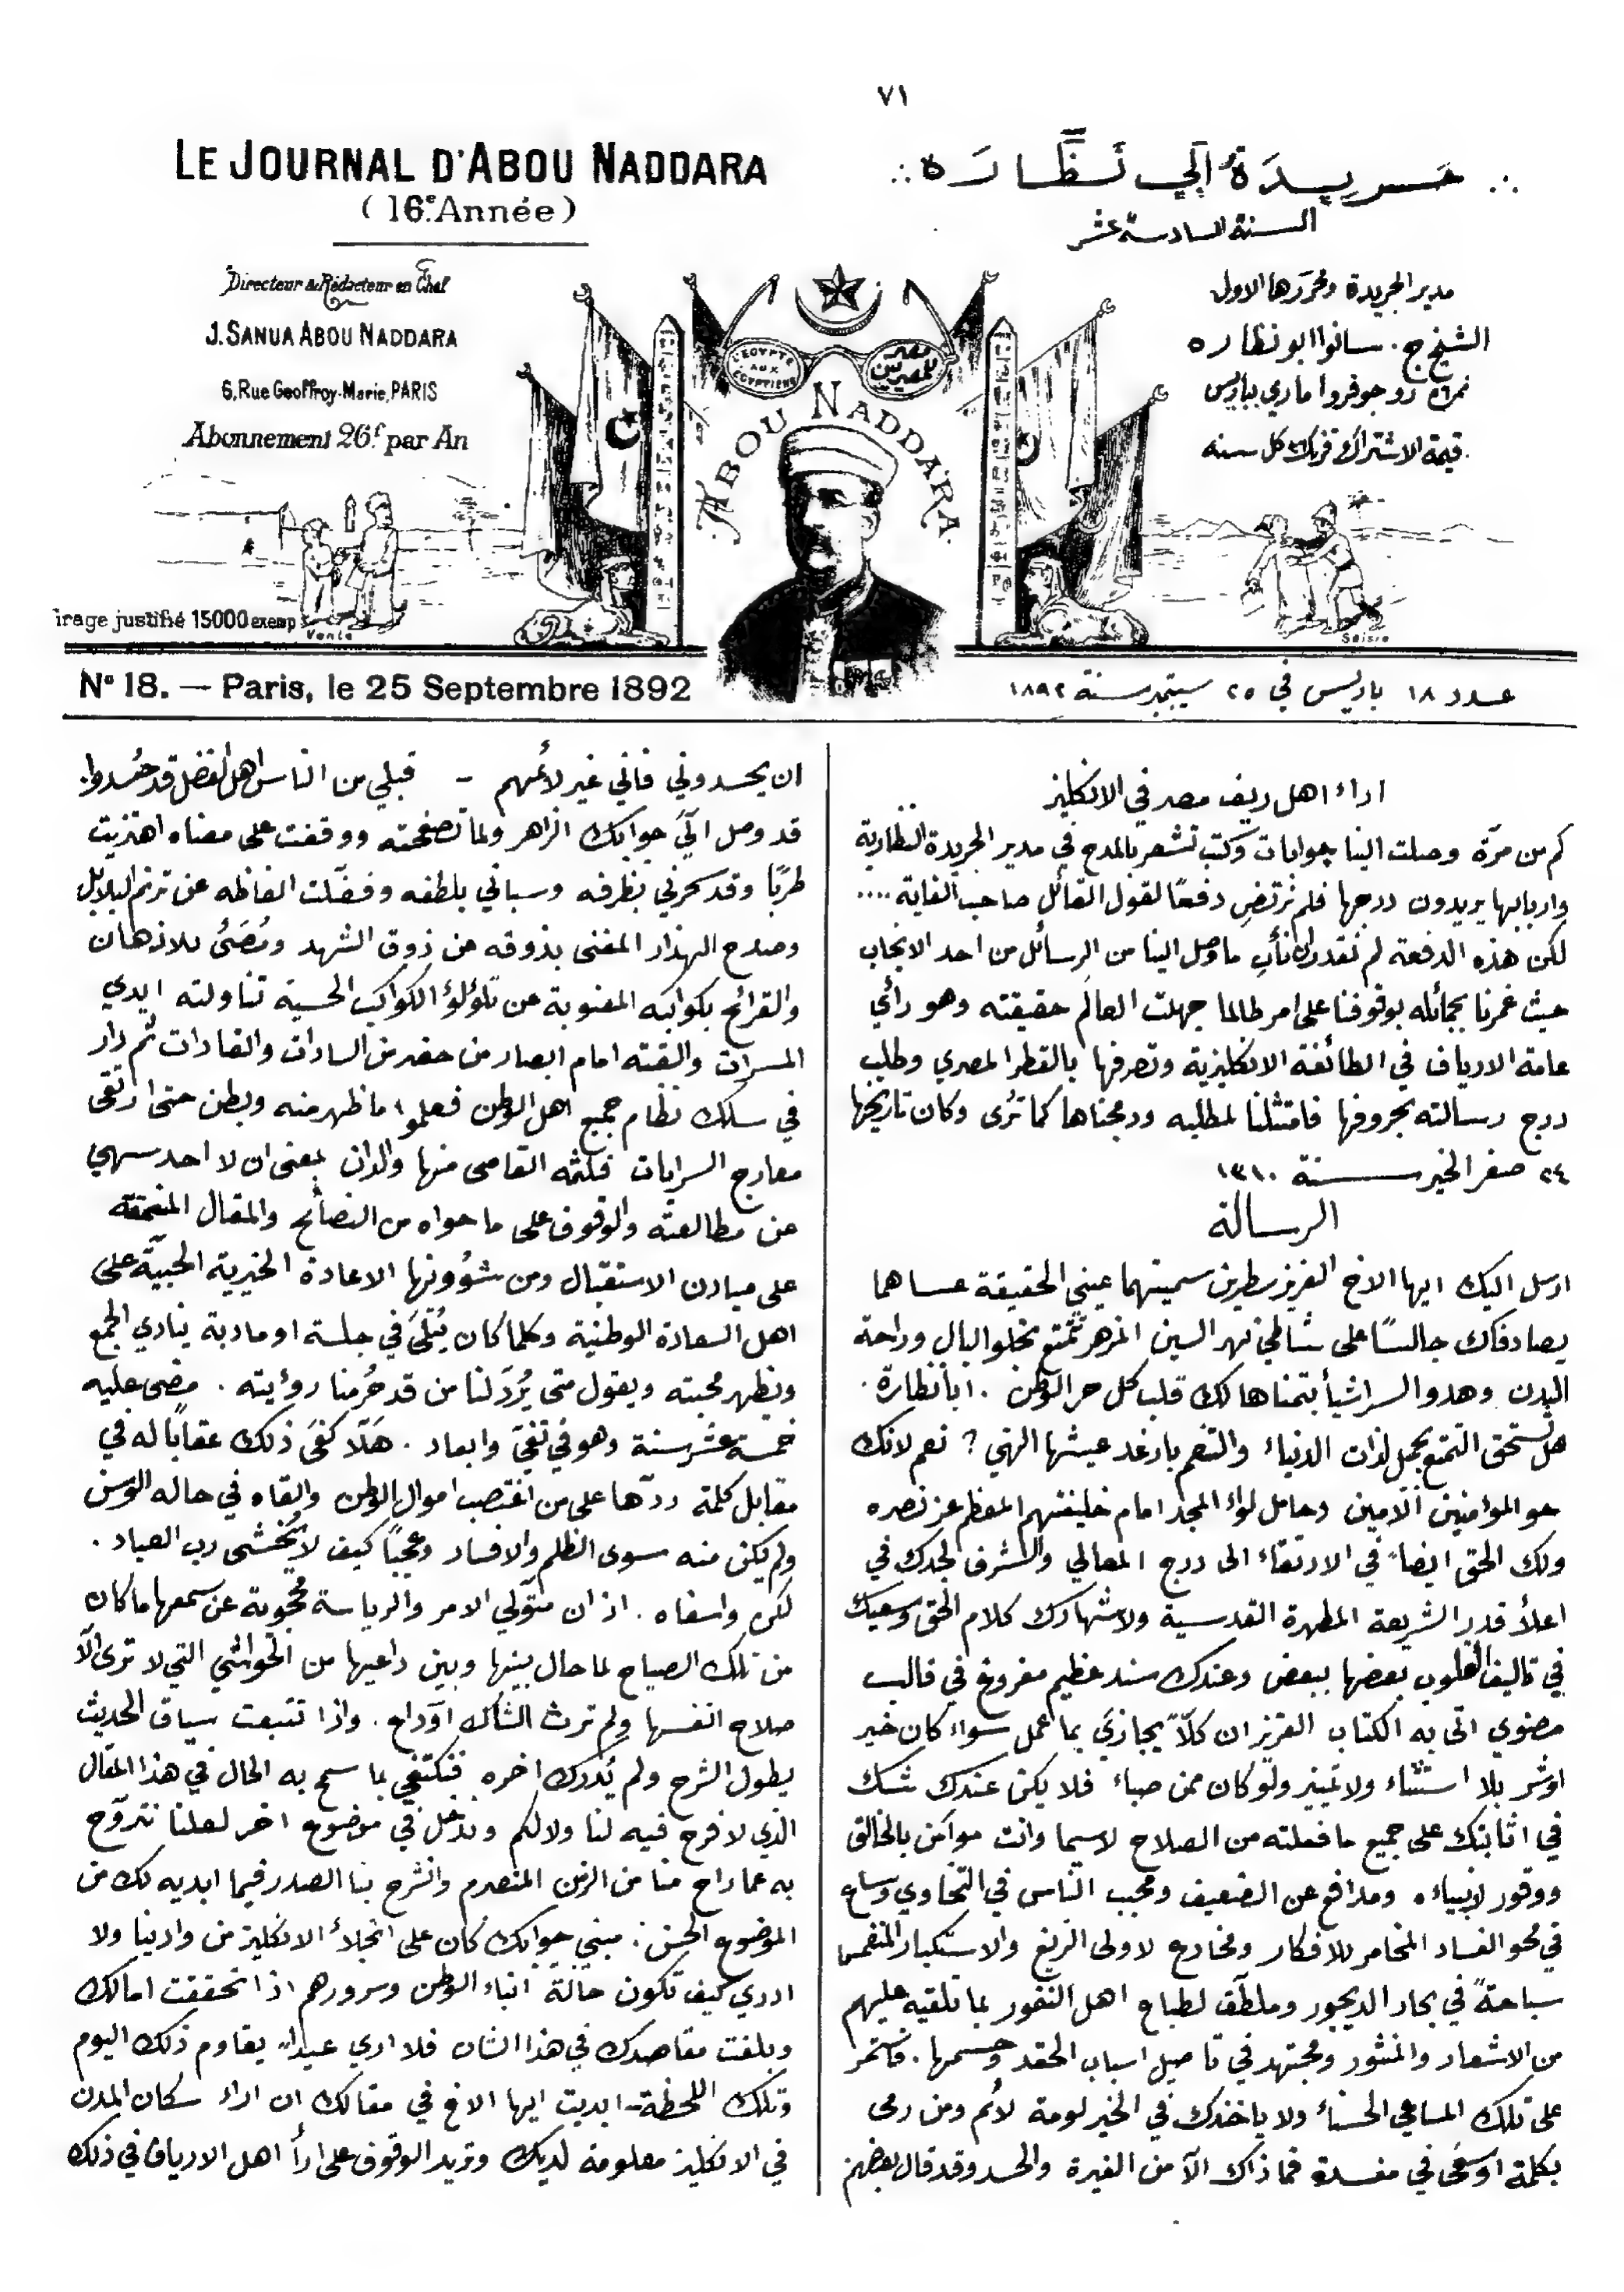 ٧١
LE JOURNAL D'ABOU NADDARA
(16e. Année)
جريدة ابي نظارة
السنة السادسة عشر
Directeur & Rédacteur en Chef
J. SANUA ABOU NADDARA
6, Rue Geoffroy-Marie, PARIS
Abonnement 26f par An
مدير الجريدة ومحررها الاول
الشيخ ج. سانوا ابو نظاره
نمرة ٦ رو جوفروا ماري بباريس
قيمة الاشتراك ٢٦ فرنك كل سنه
L'EGYPTE AUX EGYPTIENS
مصر للمصريين
ABOU NADDARA
irage justifié 15000 exemp
Vente
Saisie
No 18. — Paris, le 25 Septembre 1892
عدد ١٨ باريس في ٢٥ سبتمبر سنة ١٨٩٢
اراء اهل ريف مصر في الانكليز
كم من مرّة وصلت الينا جوابات وكتب تشعر بالمدح في مدير الجريدة النظارية
واربابها يريدون درجها فلم نرتضِ دفعًا لقول القائل صاحب الغاية ....
لكن هذه الدفعة لم نقدر ان نأب ما وصل الينا من الرسائل من احد الانجاب
حيث غمرنا بجمائله بوقوفنا على امر طالما جهلت العالم حقيقته وهو رأي
عامة الارياف في الطائفة الانكليزية وتصرفها بالقطر المصري وطلب
درج رسالته بحروفها فامتثلنا لمطلبه ودمجناها كما تُرى وكان تاريخها
٢٤ صفر الخير سنة ١٣١٠
الرسالة
ارسل اليك ايها الاخ العزيز سطرين سميتهما عيني الحقيقة عساهما
يصادفاك جالسًا على شاطئ نهر السين المزهر تتمتع بخلو البال وراحة
البدن وهدو السر اشيأ يتمناها لك قلب كل حر الوطن . ابا نظارة .
هل تستحق التمتع بجميل لذات الدنياء والتنعم بارغد عيشها الهني ؟ نعم لانك
حو المؤمنين الآمين وحامل لواء المجد امام خليفتهم المعظم عز نصره
ولك الحق ايضاً في الارتقاء الى درج المعالي والشرف لجدك في
اعلأ قدر الشريعة المطهرة القدسية ولاشهارك كلام الحق وسعيك
في تاليف القلوب بعضها ببعض وعندك سند عظيم مفروغ في قالب
معنوي اتى به الكتاب العزيز ان كلاً يجازيَ بما عمل سواء كان خير
اوشر بلا استثناء ولا تمييز ولو كان ممن صباء فلا يكن عندك شك
في اثابتك على جميع ما فعلته من الصلاح لاسيما وانت موآمن بالخالق
ووقور لانبياءه ومدافع عن الضعيف ومحبب الناس في التخاوي وساع
في محو الفساد المخامر للافكار ومخادع لاولى الزيغ والاستكبار المنغمس
سباحةً في بحار الديجور وملطف لطباع اهل النفور بما تلقيه عليهم
من الاشعار والمنثور ومجتهد في تاصيل اسباب الحقد وحسمها . فاستمر
على تلك المساعي الحسناء ولا ياخذك في الخير لومة لائم ومن رمى
بكلمة اوسعى في مفسدة فما ذاك الاّ من الغيرة والحسد وقد قال بعضهم
ان يحسدوني فاني غير لائمهم - قبلي من الناس اهل الفضل قد حُسدوا
قد وصل اليّ جوابك الزاهر ولما تصفحته ووقفت على معناه اهتزيت
طربًا وقد سحرني بظرفه وسباني بلطفه وفضّلت الفاظه عن ترنم البلابل
وصدح الهزار المغنى بذوقه عن ذوق الشهد ومُضئ للاذهان
والقرائح بكواكبه المعنوية عن تلؤلؤ الكواكب الحسية تناولته ايدي
المسرات والقته امام ابصار من حضر من السادات والغادات ثم دار
في سلك نظام جميع اهل الوطن فعلموا ما ظهر منه وبطن حتى ارتقى
معارج السرايات فلثمه القاصى منها والدان بمعنى ان لا احد سهي
عن مطالعته والوقوف على ما حواه من النصائح والمقال
على ميادن الاستقبال ومن شؤونها الاعادة الخيرية الحبيّة على
اهل السعادة الوطنية وكلما كان يُتلىَ في جلسة او مادبة ينادي الجمع
وتظهر محبته ويقول متى يُرَدّ لنا من قد حُرمنا رؤيته . مضى عليه
خمسة عشر سنة وهو في نَفيَ وابعاد . هَلّا كفَى ذلك عقابًا له في
مقابل كلمة ردّها على من اغتصب اموال الوطن والقاه في حاله الوسن
ولم يكن منه سوى الظلم والافساد وعجبًا كيف لا يُخشى رب العباد .
لكن واسفاه . اذ ان متولي الامر والرياسة محجوبة عن سمعها ما كان
من تلك الصياح لما حال بينها وبين داعيها من الحواشي التي لا ترى الاّ
صلاح انفسها ولم ترث الشاك اوّداع . واذا تتبعت سياق الحديث
يطول الشرح ولم يُدرك اخره فنكتفي بما سمح به الحال في هذا المقال
الذي لا فرح فيه لنا ولا لكم وندخل في موضوع اخر لعلنا نتروّح
به عما راح منا من الزمن المنصرم وانشرح بنا الصدر فيما ابديه لك من
الموضوع الحسن : مبني جوابك كان على انجلأ الانكليز من وادينا ولا
ادري كيف تكون حالة ابناء الوطن وسرورهم اذا تحققت امالك
وبلغت مقاصدك في هذا الشان فلا اري عيداً يقاوم ذلك اليوم
وتلك اللحظة - ابديت ايها الاخ في مقالك ان اراء سكان المدن
في الانكليز معلومة لديك وتريد الوقوف على ارأ اهل الارياف في ذلك